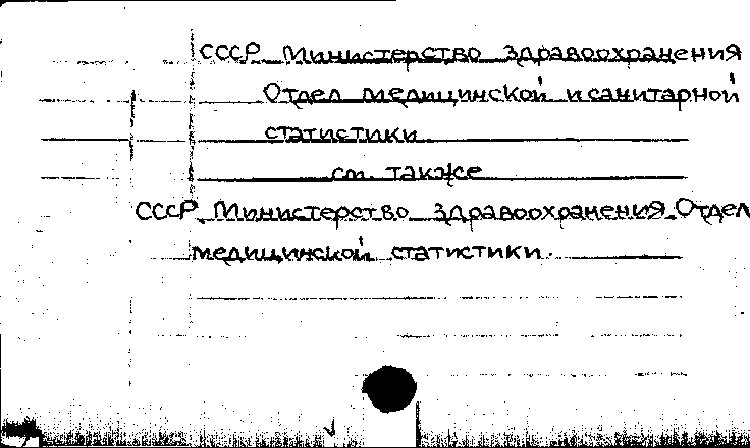 СССР. Министерство здравоохранения
Отдел медицинской и санитарной
статистики
см. также
СССР. Министерство здравоохранения. Отдел
медицинской статистики.